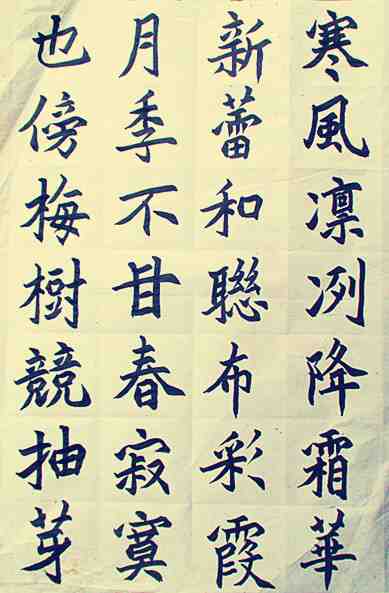 寒風凛冽降霜華
新蕾和聯布彩霞
月季不甘春寂寞
也傍梅樹競抽芽